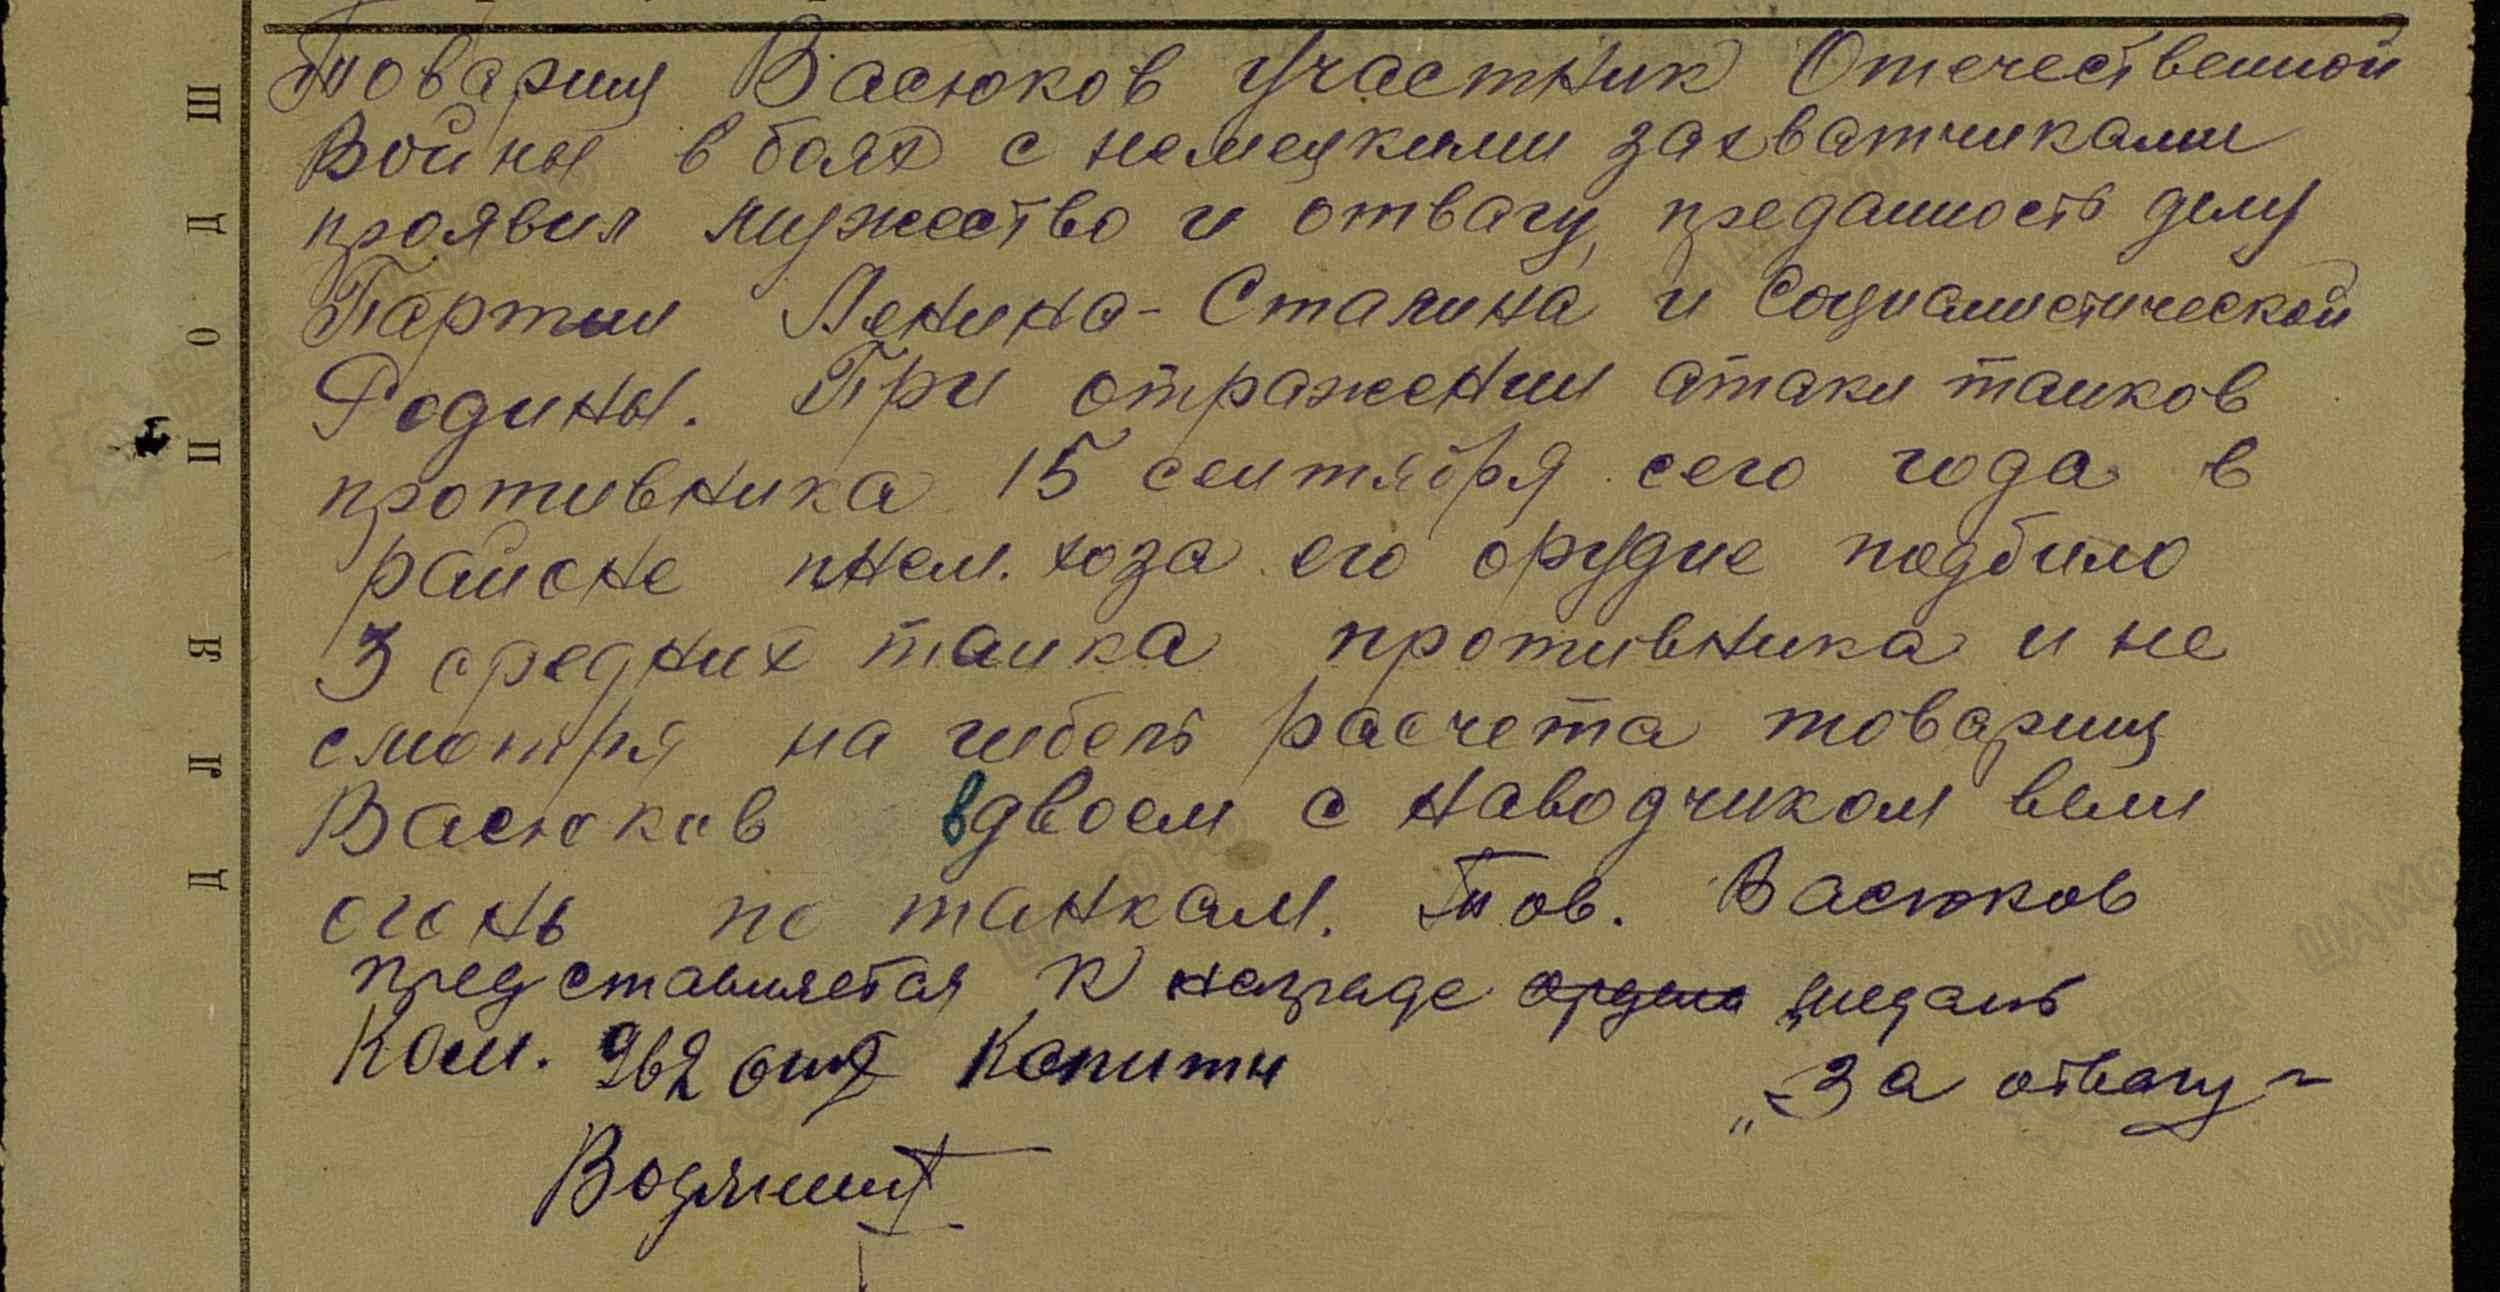 Товарищ Васюков участник Отечественной
Войны в боях с немецкими захватчиками
проявил мужество и отвагу, преданность делу
Партии Ленина-Сталина и Социалистической
Родины. При отражении атаки танков
противника 15 сентября сего года в
районе плем. хоза его орудие подбило
3 средних танка противника и не
смотря на гибель расчета товарищ
Васюков вдвоем с наводчиком вели
огонь по танкам. Тов. Васюков
представляется к награде ордена медаль
"За отвагу"
Ком. 962 Капитн